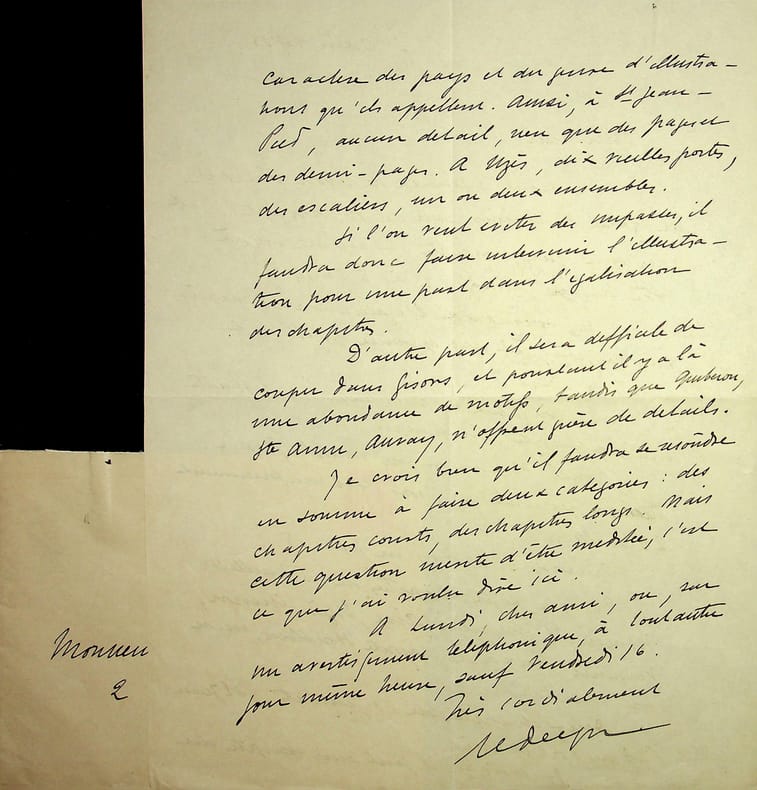 caractère des pays et du genre d'illustra-
tions qu'ils appellent. Ainsi, à St Jean-
Pied, aucun détail, rien que des pages et
des demi-pages. A Uzès, dix vieilles portes,
des escaliers, un ou deux ensembles.
Si l'on veut eviter des impasses, il
faudra donc faire intervenir l'illustra-
tion pour une part dans l'égalisation
des chapitres.
D'autre part, il sera difficile de
couper dans Gisors, et pourtant il y a là
une abondance de motifs, tandis que Quiberon,
Ste Anne, Auray, n'offrent guère de détails.
Je crois bien qu'il faudra se résoudre
en somme à faire deux catégories : des
chapitres courts, des chapitres longs. Mais
cette question mérite d'être méditée, c'est
ce que j'ai voulu dire ici.
A Lundi, cher ami, ou, sur
un avertissement téléphonique, à tout autre
jour même heure, sauf Vendredi 16.
Très cordialement
Monsieu
2